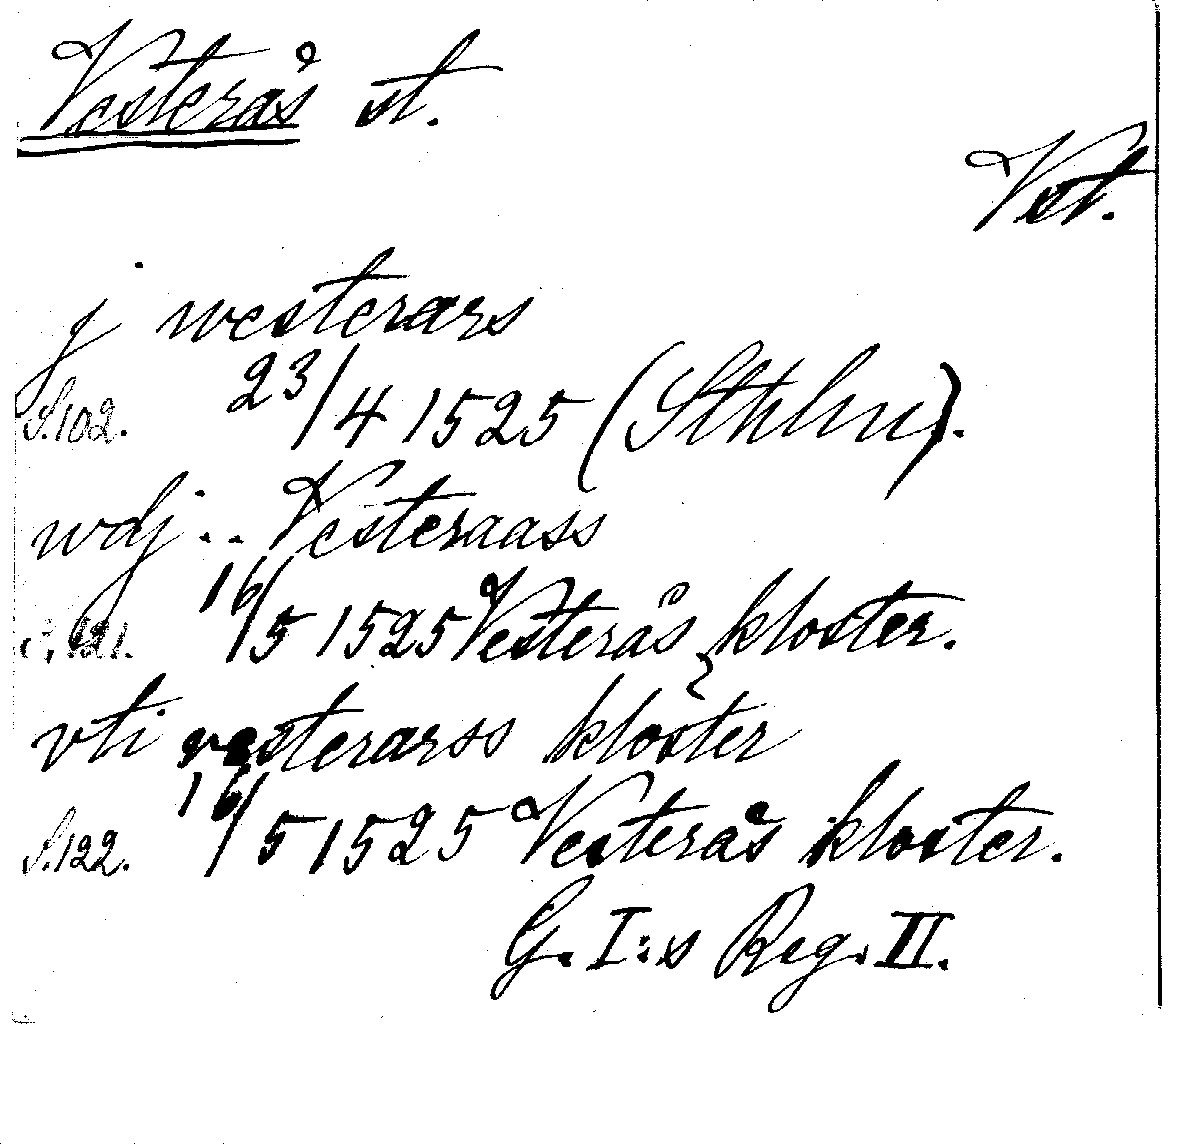 Vesterås st.
Vst.
j westerars
S.102. 23/4 1525 (Sthlm).
wdj .. Vesteraass
S.121. 16/5 1525 Vesterås kloster.
vti vesterarss kloster
S.122. 16/5 1525 Vesterås kloster.
G. I:s Reg. II.